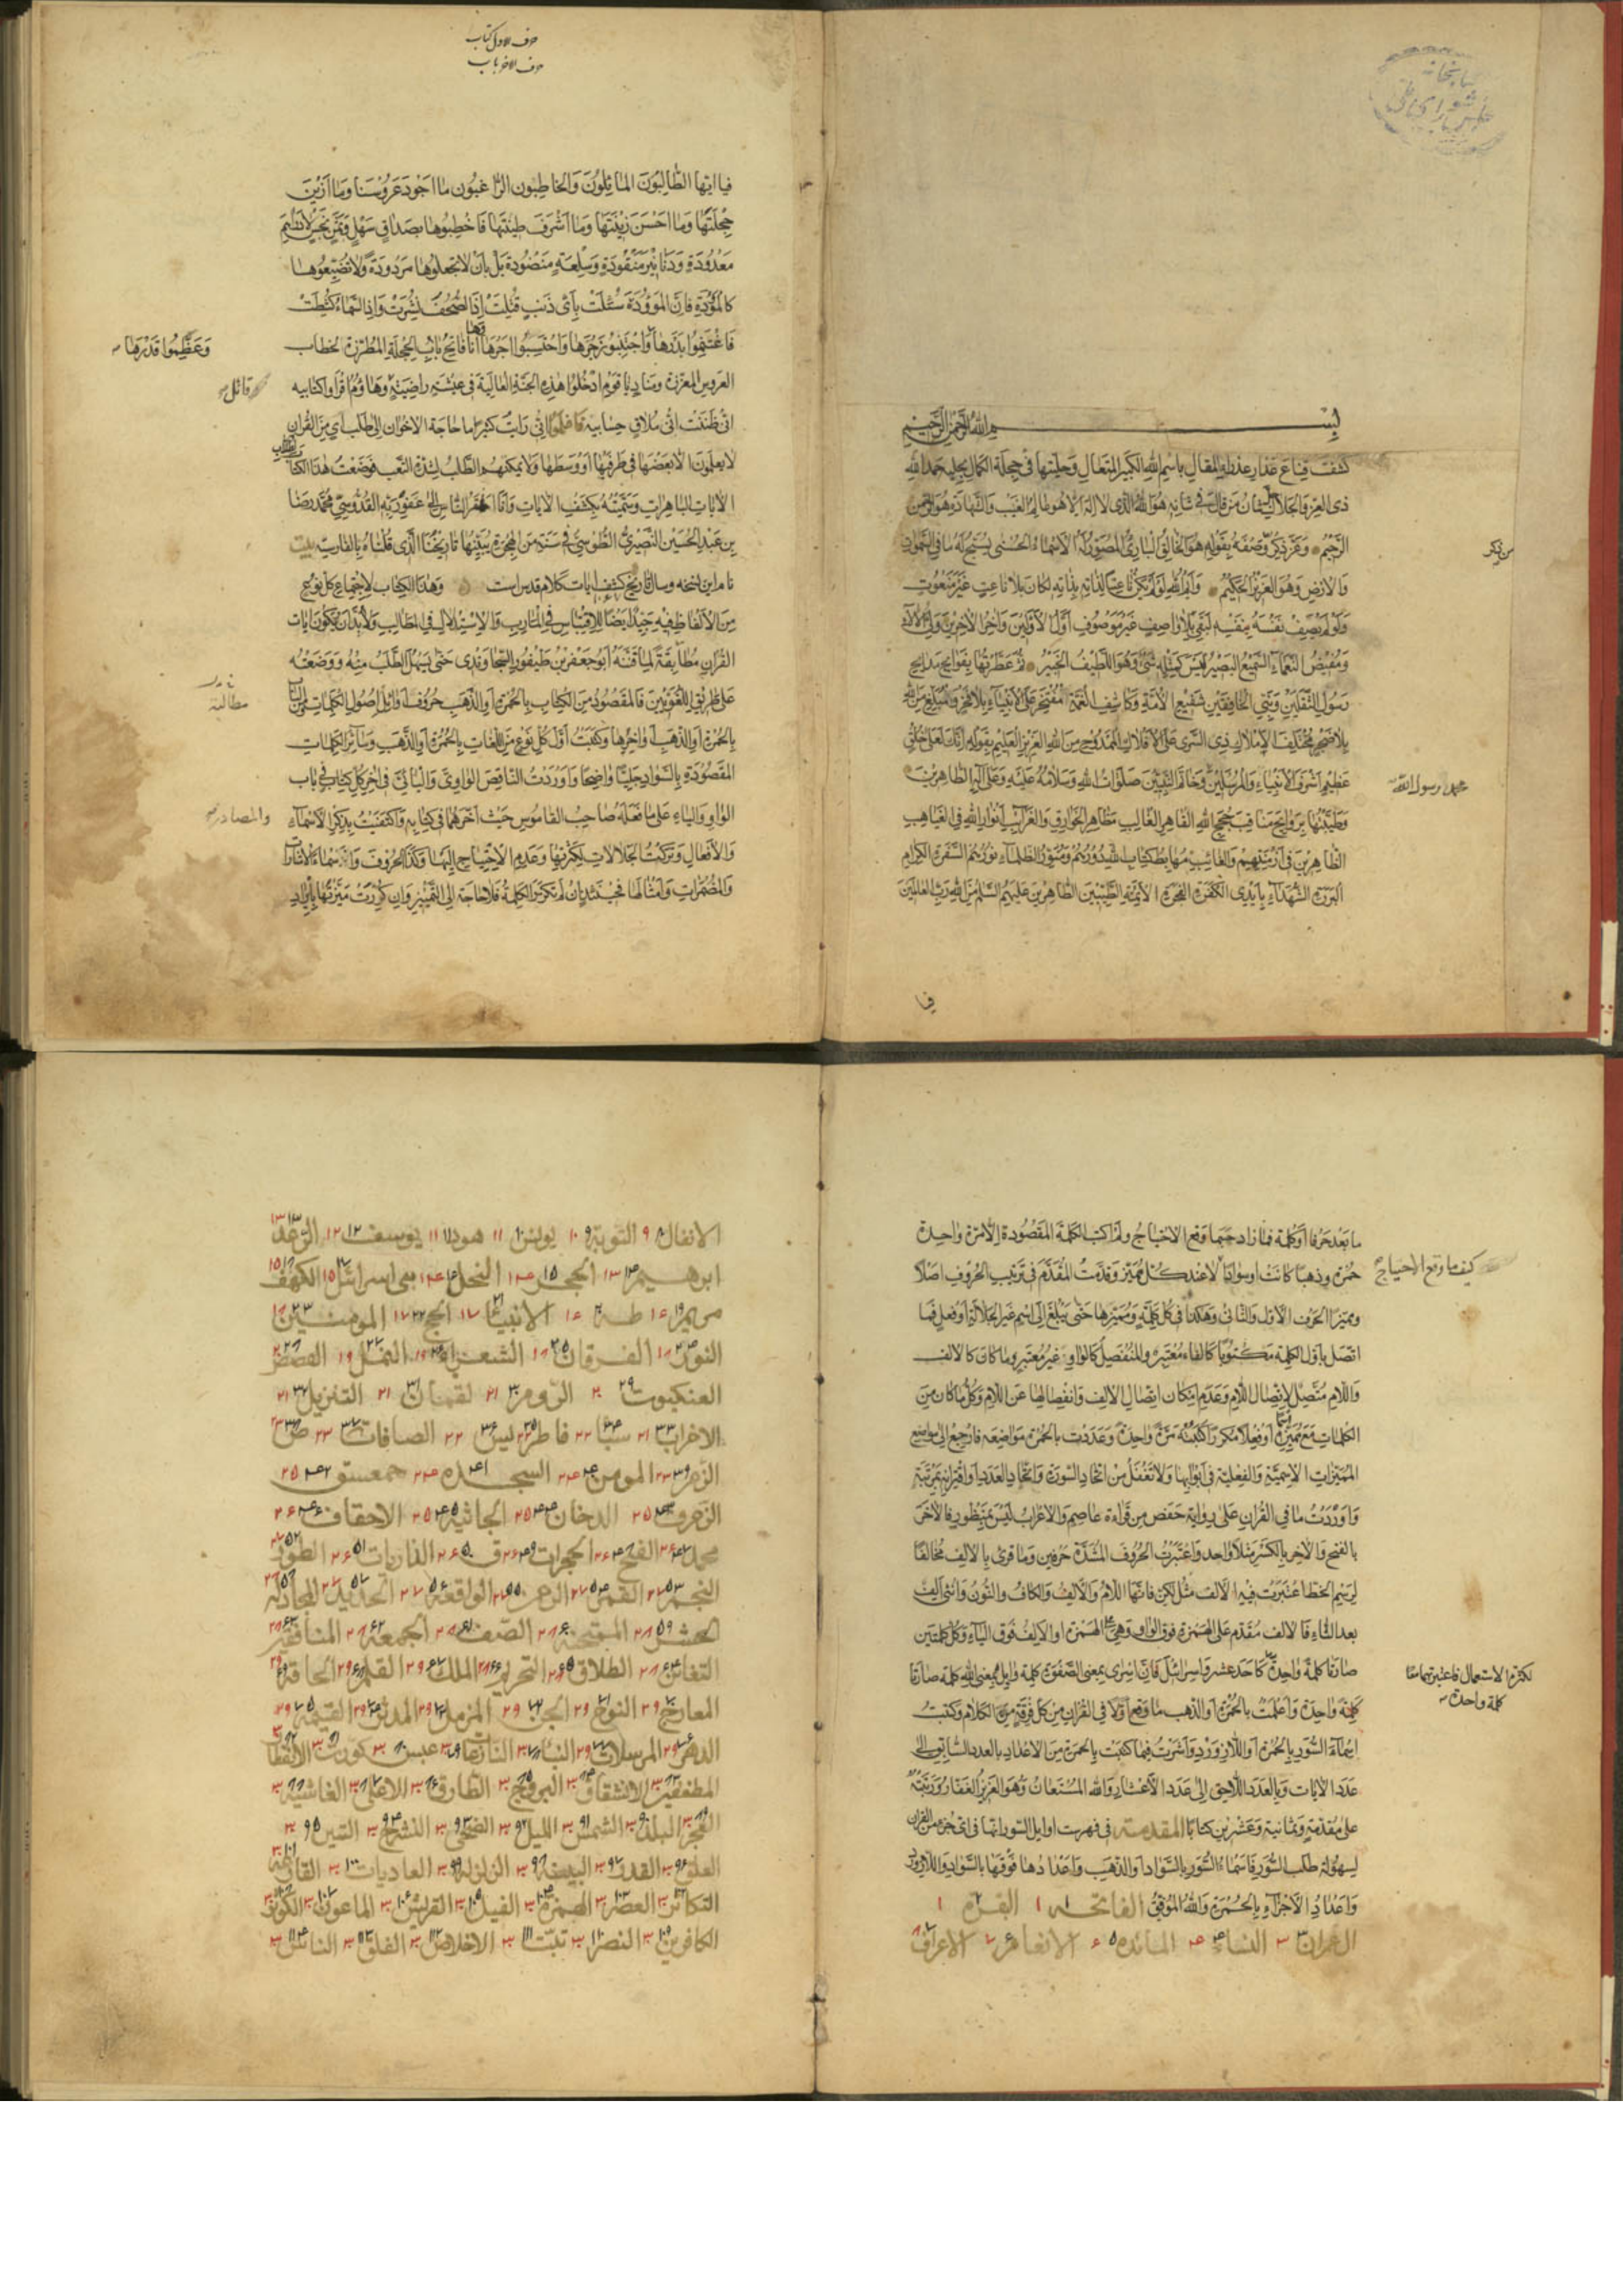 بسم الله الرحمن الرحيم
كشف قناع عذار عذراء المقال باسم الله الكبير المتعال وحليتها في حجلة الكمال بحلية حمد الله
ذي العز والجلال من قال في شانه هو الله الذي لا اله الا هو عالم الغيب والشهادة هو الرحمن
الرحيم وعز ذكر وصفه بقوله هو الخالق البارئ المصور له الاسماء الحسنى يسبح له ما في السموات
والارض وهو العزيز الحكيم وايم الله لو لم يكن ناعتا لذاته بذاته لكان بلا ناعت غير منعوت
ولو لم يصف نفسه بنفسه لبقي بلا واصف غير موصوف اول الاولين واخر الاخرين ولي الالاء
ومفيض النعماء السميع البصير ليس كمثله شئ وهو اللطيف الخبير ثم عطرتها بفوايح مدايح
رسول الثقلين ونبي الخافقين شفيع الامة وكاشف الغمة المفتخر على الانبياء بلا فخر والمبلغ من الله
عظيم اشرف الانبياء والمرسلين وخاتم النبيين صلوات الله وسلامه عليه وعلى آله الطاهرين
محمد رسول الله
وطيبتها بروايح مناقب حجج الله القاهر الغالب مظاهر الخوارق والغرائب انوار الله في الغياهب
البررة الشهداء بايدي الكفرة الفجرة الائمة الطيبين الطاهرين عليهم السلام من الله رب العالمين
فيا
حرف الاول كتاب
حرف الاخر باب
فيا ايها الطالبون المائلون والخاطبون الراغبون ما اجود عروسنا وما ازين
حجلتها وما احسن زينتها وما اشرف طينتها فاخطبوها بصداق سهل وثمن بخس لا بدراهم
معدودة ودنانير منقودة وسلعة منضودة بل بان لا تجعلوها مردودة ولا تضيعوها
كالموؤدة فان الموؤدة سئلت باى ذنب قتلت اذا الصحف نشرت واذا السماء كشطت
وعظموا قدرها
العروس المعززة ومناد يا قوم ادخلوا هذه الجنة العالية في عيشة راضية وهاؤم اقرأوا كتابيه
قائل
انى ظننت انى ملاق حسابيه فاعلموا انى رايت كثيرا ما حاجة الاخوان الى طلب اى من القران
لا يعلمون الا بعضها في طرفيها او وسطها ولا يمكنهم الطلب لشدة التعب فوضعت هذا الكتاب
الايات الباهرات وسميته بكشف الايات وانا افقر الناس الى عفو ربه القدوسي محمد رضا
بن عبد الحسين النصيري الطوسي في سنة من الهجرة يبينها تاريخنا الذي قلناه بالفارسية بيت
نام اين نسخه وسال تاريخ كشف ايات كلام قدس است وهذا الكتاب لاجتماع كل نوع
من الالفاظ فيه جيد ايضا للاقتباس في المارب والاستدلال في المطالب ولا بد ان يكون ايات
القران مطابقة لما قننه ابو جعفر بن طيفور السجاوندى حتى يسهل الطلب منه ووضعته
على طريق اللغويين فالمقصود من الكتاب بالحمرة او الذهب حروف اوائل اصول الكلمات
بالحمرة او الذهب اواخرها وكتبت اول كل نوع من اللغات بالحمرة او الذهب وسائر الكلمات
المقصودة بالسواد جليا واضحا واوردت الناقص الواوى واليائى في اخر كل كتاب في باب
الواو والياء على ما فعله صاحب القاموس حيث اخرهما في كتابه واكتفيت بذكر الاسماء
والمصادر
والافعال وتركت الجلالات لكثرتها وعدم الاحتياج اليها وكذا الحروف واسماء الاشارات
والمضمرات وامثالها فحينئذ ان لم تكرر الكلمة فلا حاجة الى التمييز وان كررت ميزتها بايراد
ما بعد حرفا او كلمة فما زاد حيثما وقع الاحتياج ولم اكتب الكلمة المقصودة الا مرة واحدة
كيف ما وقع الاحتياج
حمرة وذهبا كانت او سوادا لا عند كل مميز وقدمت المقدم في ترتيب الحروف اصلا
ومميزا الحرف الاول والثاني وهكذا في كل كلمة ومميزها حتى يبلغ الى اسم غير الجلالة او فعل فما
اتصل باول الكلمة مكتوبا كالفاء معتبر والمنفصل كالواو غير معتبر وما كان كالالف
واللام متصل لاتصال اللام وعدم امكان اتصال الالف وانفصالها عن اللام وكل ما كان من
الكلمات مع مميزه اسما او فعلا مكررا كتبته مرة واحدة وعددت بالحمرة مواضعه فارجع الى مواضع
المميزات الاسمية والفعلية في ابوابها ولا تغفل من اتحاد السورة واتحاد العدد او اقترانه بمرتبة
واوردت ما في القران على رواية حفص من قراءة عاصم والاعراب ليس بمنظور فالاخر
بالفتح والاخر بالكسر مثلا واحد واعتبرت الحروف المشددة حرفين وما قرئ بالالف مخالفا
لرسم الخط اعتبرت فيه الالف مثل لكن فانها اللام والالف والكاف والنون وانثى الف
بعد الثاء فالالف مقدم على الهمزة فوق الواو وهي على الهمزة او الالف فوق الياء وكل كلمتين
صارتا كلمة واحدة كاحد عشر واسرائيل فان اسرى بمعنى الصفوة كلمة وايل بمعنى الله كلمة صارتا
لكثرة الاستعمال فاعتبرتهما معا
كلمة واحدة
كلمة واحدة واعلمت بالحمرة او الذهب ما وقع اولا في القران من كل فرقة من الكلام وكتبت
اسماء السور بالحمرة او اللازورد واشرت فيما كتبت بالحمرة من الاعداد بالعدد السابق الى
عدد الايات وبالعدد اللاحق الى عدد الاعشار والله المستعان وهو العزيز الغفار ورتبته
على مقدمة وثمانية وعشرين كتابا المقدمة في فهرست اوايل السور انها في اى جزء من القران
لسهولة طلب السور فاسماء السور بالسواد او الذهب واعدادها فوقها بالسواد واللازورد
واعداد الاجزاء بالحمرة والله الموفق الفاتحة ١ ١ البقرة ٢ ١
ال عمران ٣ ٣ النساء ٤ ٤ المائده ٥ ٦ الانعام ٦ ٧ الاعراف ٧ ٨
الانفال ٨ ٩ التوبة ٩ ١٠ يونس ١٠ ١١ هود ١١ ١١ يوسف ١٢ ١٢ الرعد ١٣ ١٣
ابرهيم ١٤ ١٣ الحجر ١٥ ١٤ النحل ١٦ ١٤ بنى اسرائيل ١٧ ١٥ الكهف ١٨ ١٥
مريم ١٩ ١٦ طه ٢٠ ١٦ الانبيا ٢١ ١٧ الحج ٢٢ ١٧ المومنين ٢٣ ١٨
النور ٢٤ ١٨ الفرقان ٢٥ ١٨ الشعراء ٢٦ ١٩ النمل ٢٧ ١٩ القصص ٢٨ ٢٠
العنكبوت ٢٩ ٢٠ الروم ٣٠ ٢١ لقمان ٣١ ٢١ التنزيل ٣٢ ٢١
الاحزاب ٣٣ ٢١ سبا ٣٤ ٢٢ فاطر ٣٥ ٢٢ يس ٣٦ ٢٢ الصافات ٣٧ ٢٣ ص ٣٨ ٢٣
الزمر ٣٩ ٢٣ المومن ٤٠ ٢٤ السجده ٤١ ٢٤ حمعسق ٤٢ ٢٥
الزخرف ٤٣ ٢٥ الدخان ٤٤ ٢٥ الجاثيه ٤٥ ٢٥ الاحقاف ٤٦ ٢٦
محمد ٤٧ ٢٦ الفتح ٤٨ ٢٦ الحجرات ٤٩ ٢٦ ق ٥٠ ٢٦ الذاريات ٥١ ٢٦ الطور ٥٢ ٢٧
النجم ٥٣ ٢٧ القمر ٥٤ ٢٧ الرحمن ٥٥ ٢٧ الواقعه ٥٦ ٢٧ الحديد ٥٧ ٢٧ المجادله ٥٨ ٢٨
الحشر ٥٩ ٢٨ الممتحنه ٦٠ ٢٨ الصف ٦١ ٢٨ الجمعه ٦٢ ٢٨ المنافقين ٦٣ ٢٨
التغابن ٦٤ ٢٨ الطلاق ٦٥ ٢٨ التحريم ٦٦ ٢٨ الملك ٦٧ ٢٩ القلم ٦٨ ٢٩ الحاقه ٦٩ ٢٩
المعارج ٧٠ ٢٩ النوح ٧١ ٢٩ الجن ٧٢ ٢٩ المزمل ٧٣ ٢٩ المدثر ٧٤ ٢٩ القيمة ٧٥ ٢٩
الدهر ٧٦ ٢٩ المرسلات ٧٧ ٢٩ النبا ٧٨ ٣٠ النازعات ٧٩ ٣٠ عبس ٨٠ ٣٠ كورت ٨١ ٣٠ الانفطار ٨٢ ٣٠
المطففين ٨٣ ٣٠ الانشقاق ٨٤ ٣٠ البروج ٨٥ ٣٠ الطارق ٨٦ ٣٠ الاعلى ٨٧ ٣٠ الغاشيه ٨٨ ٣٠
الفجر ٨٩ ٣٠ البلد ٩٠ ٣٠ الشمس ٩١ ٣٠ الليل ٩٢ ٣٠ الضحى ٩٣ ٣٠ النشرح ٩٤ ٣٠ التين ٩٥ ٣٠
العلق ٩٦ ٣٠ القدر ٩٧ ٣٠ البينه ٩٨ ٣٠ الزلزله ٩٩ ٣٠ العاديات ١٠٠ ٣٠ القارعه ١٠١ ٣٠
التكاثر ١٠٢ ٣٠ العصر ١٠٣ ٣٠ الهمزه ١٠٤ ٣٠ الفيل ١٠٥ ٣٠ القريش ١٠٦ ٣٠ الماعون ١٠٧ ٣٠ الكوثر ١٠٨ ٣٠
الكافرين ١٠٩ ٣٠ النصر ١١٠ ٣٠ تبت ١١١ ٣٠ الاخلاص ١١٢ ٣٠ الفلق ١١٣ ٣٠ الناس ١١٤ ٣٠